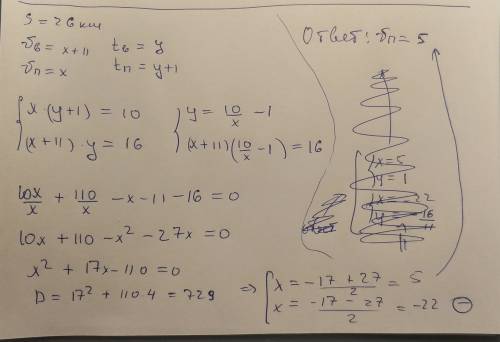 S = 26 км
υв = x+11 tв = y
υп = x tп = y+1
{ x·(y+1) = 10
(x+11)·y = 16
{ y = 10/x - 1
(x+11)(10/x - 1) = 16
10x/x + 110/x - x - 11 - 16 = 0
10x + 110 - x² - 27x = 0
x² + 17x - 110 = 0
D = 17² + 110·4 = 729
⇒ [ x = (-17 + 27)/2 = 5
x = (-17 - 27)/2 = -22 ⊖
Ответ: υп = 5
x = 5
y = 1